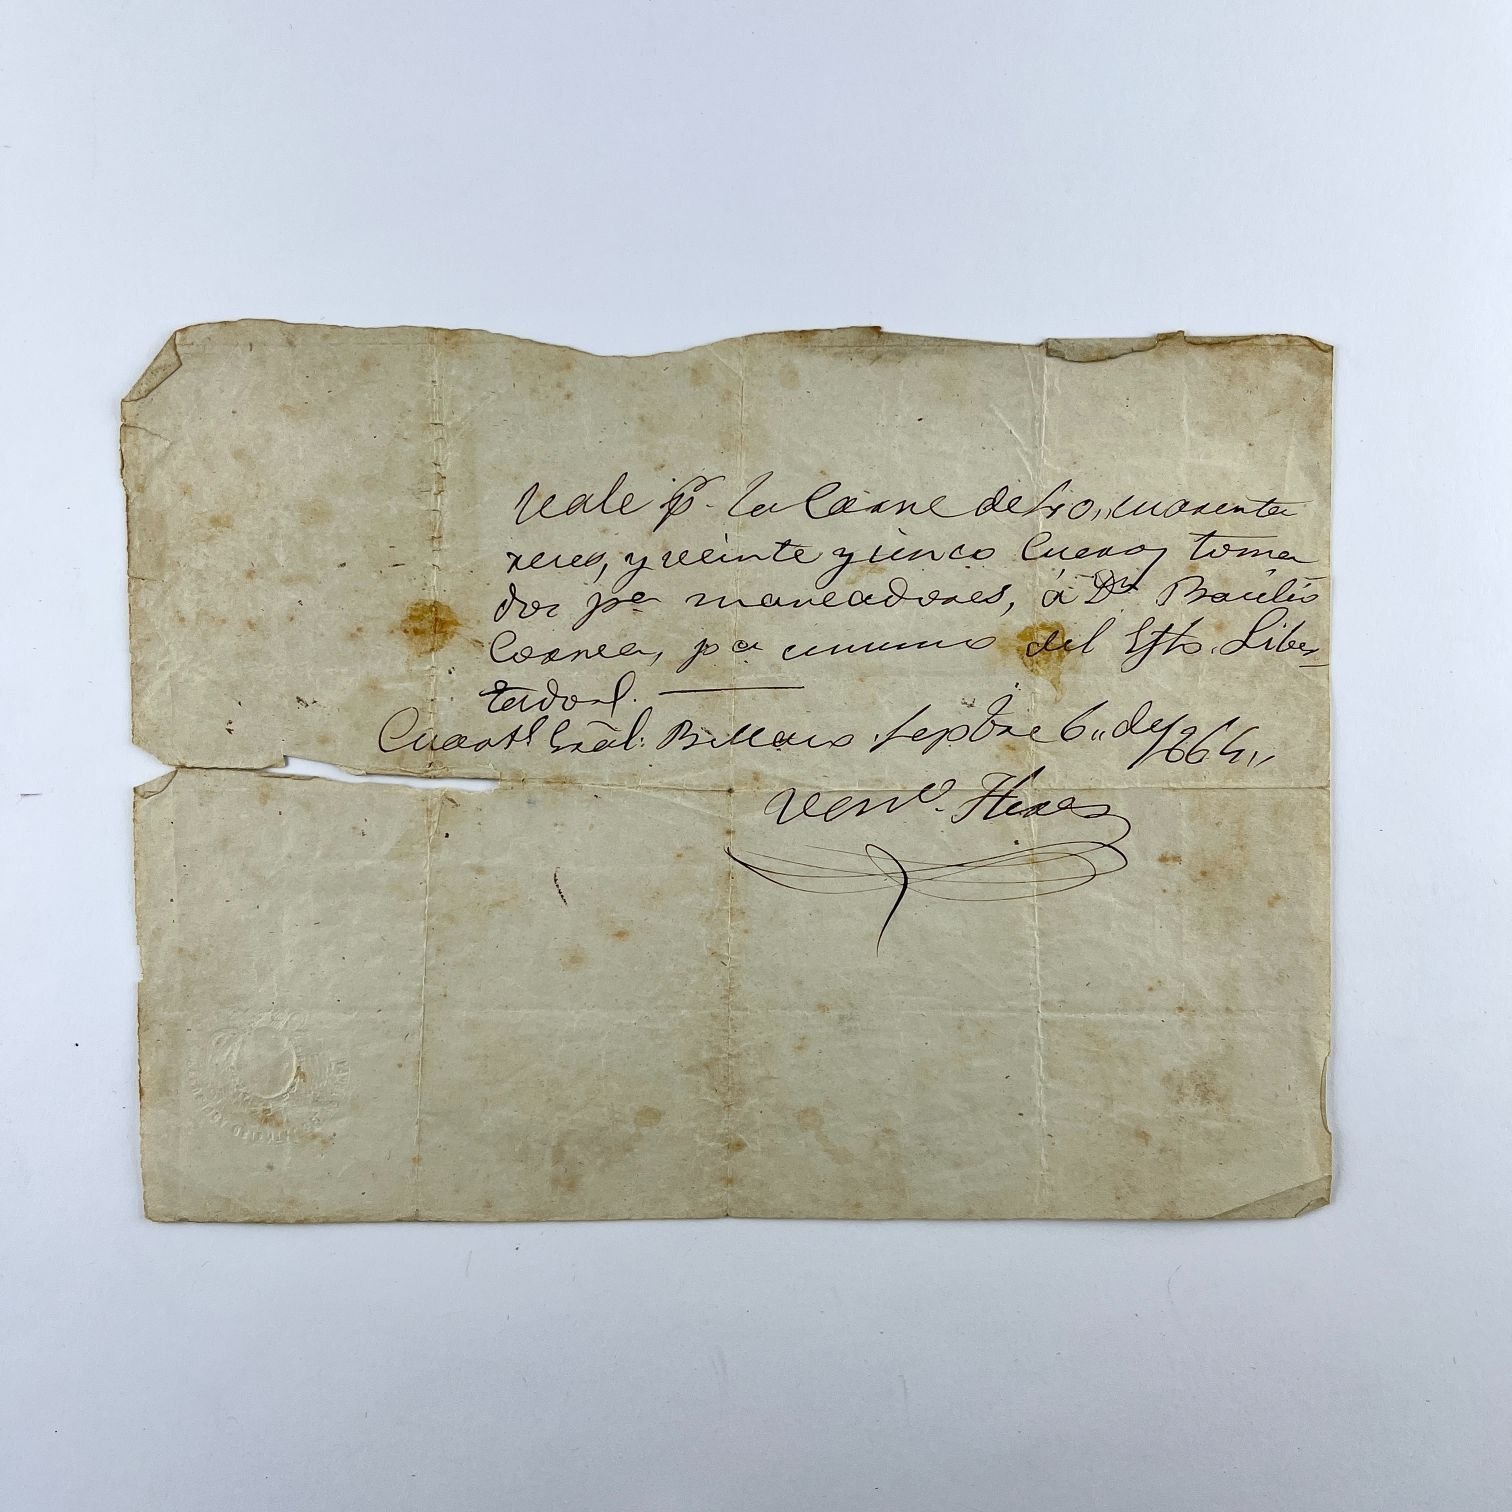 Vale p.r la Carne de 40,, cuarenta
reses, y veinte y cinco Cueros toma
dos pa maneadores, á Dn Basilio
Correa, pa consumo del Ejto. Liber
tador.
Cuartl Gral: Septbre 6,, de 1864,,
Vencio. Flores